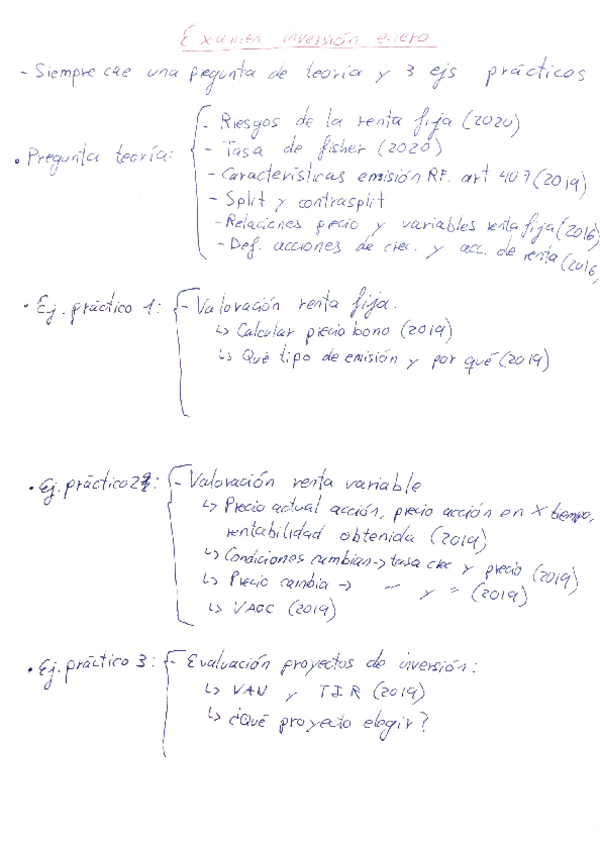 Examen inversión enero
- Siempre cae una pregunta de teoría y 3 ejs prácticos
• Pregunta teoría:
- Riesgos de la renta fija (2020)
- Tasa de fisher (2020)
- Características emisión RF. art 407 (2019)
- Split y contrasplit
- Relaciones precio y variables renta fija (2016)
- Def. acciones de crec. y acc. de renta (2016)
• Ej. práctico 1: - Valoración renta fija.
↳ Calcular precio bono (2019)
↳ Qué tipo de emisión y por qué (2019)
• Ej. práctico 2: - Valoración renta variable
↳ Precio actual acción, precio acción en X tiempo,
rentabilidad obtenida (2019)
↳ Condiciones cambian → tasa crec y precio (2019)
↳ Precio cambia → " y " (2019)
↳ VAOC (2019)
• Ej. práctico 3: - Evaluación proyectos de inversión:
↳ VAN y TIR (2019)
↳ ¿Qué proyecto elegir?